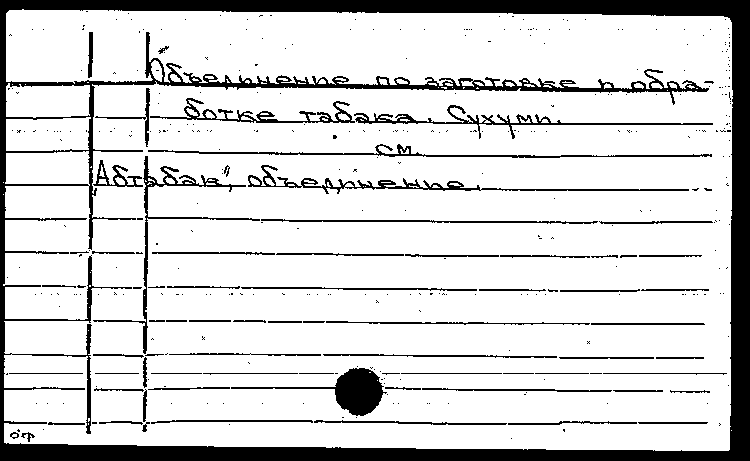 Объединение по заготовке и обра-
ботке табака. Сухуми.
см.
„Абтабак", объединение.
оф